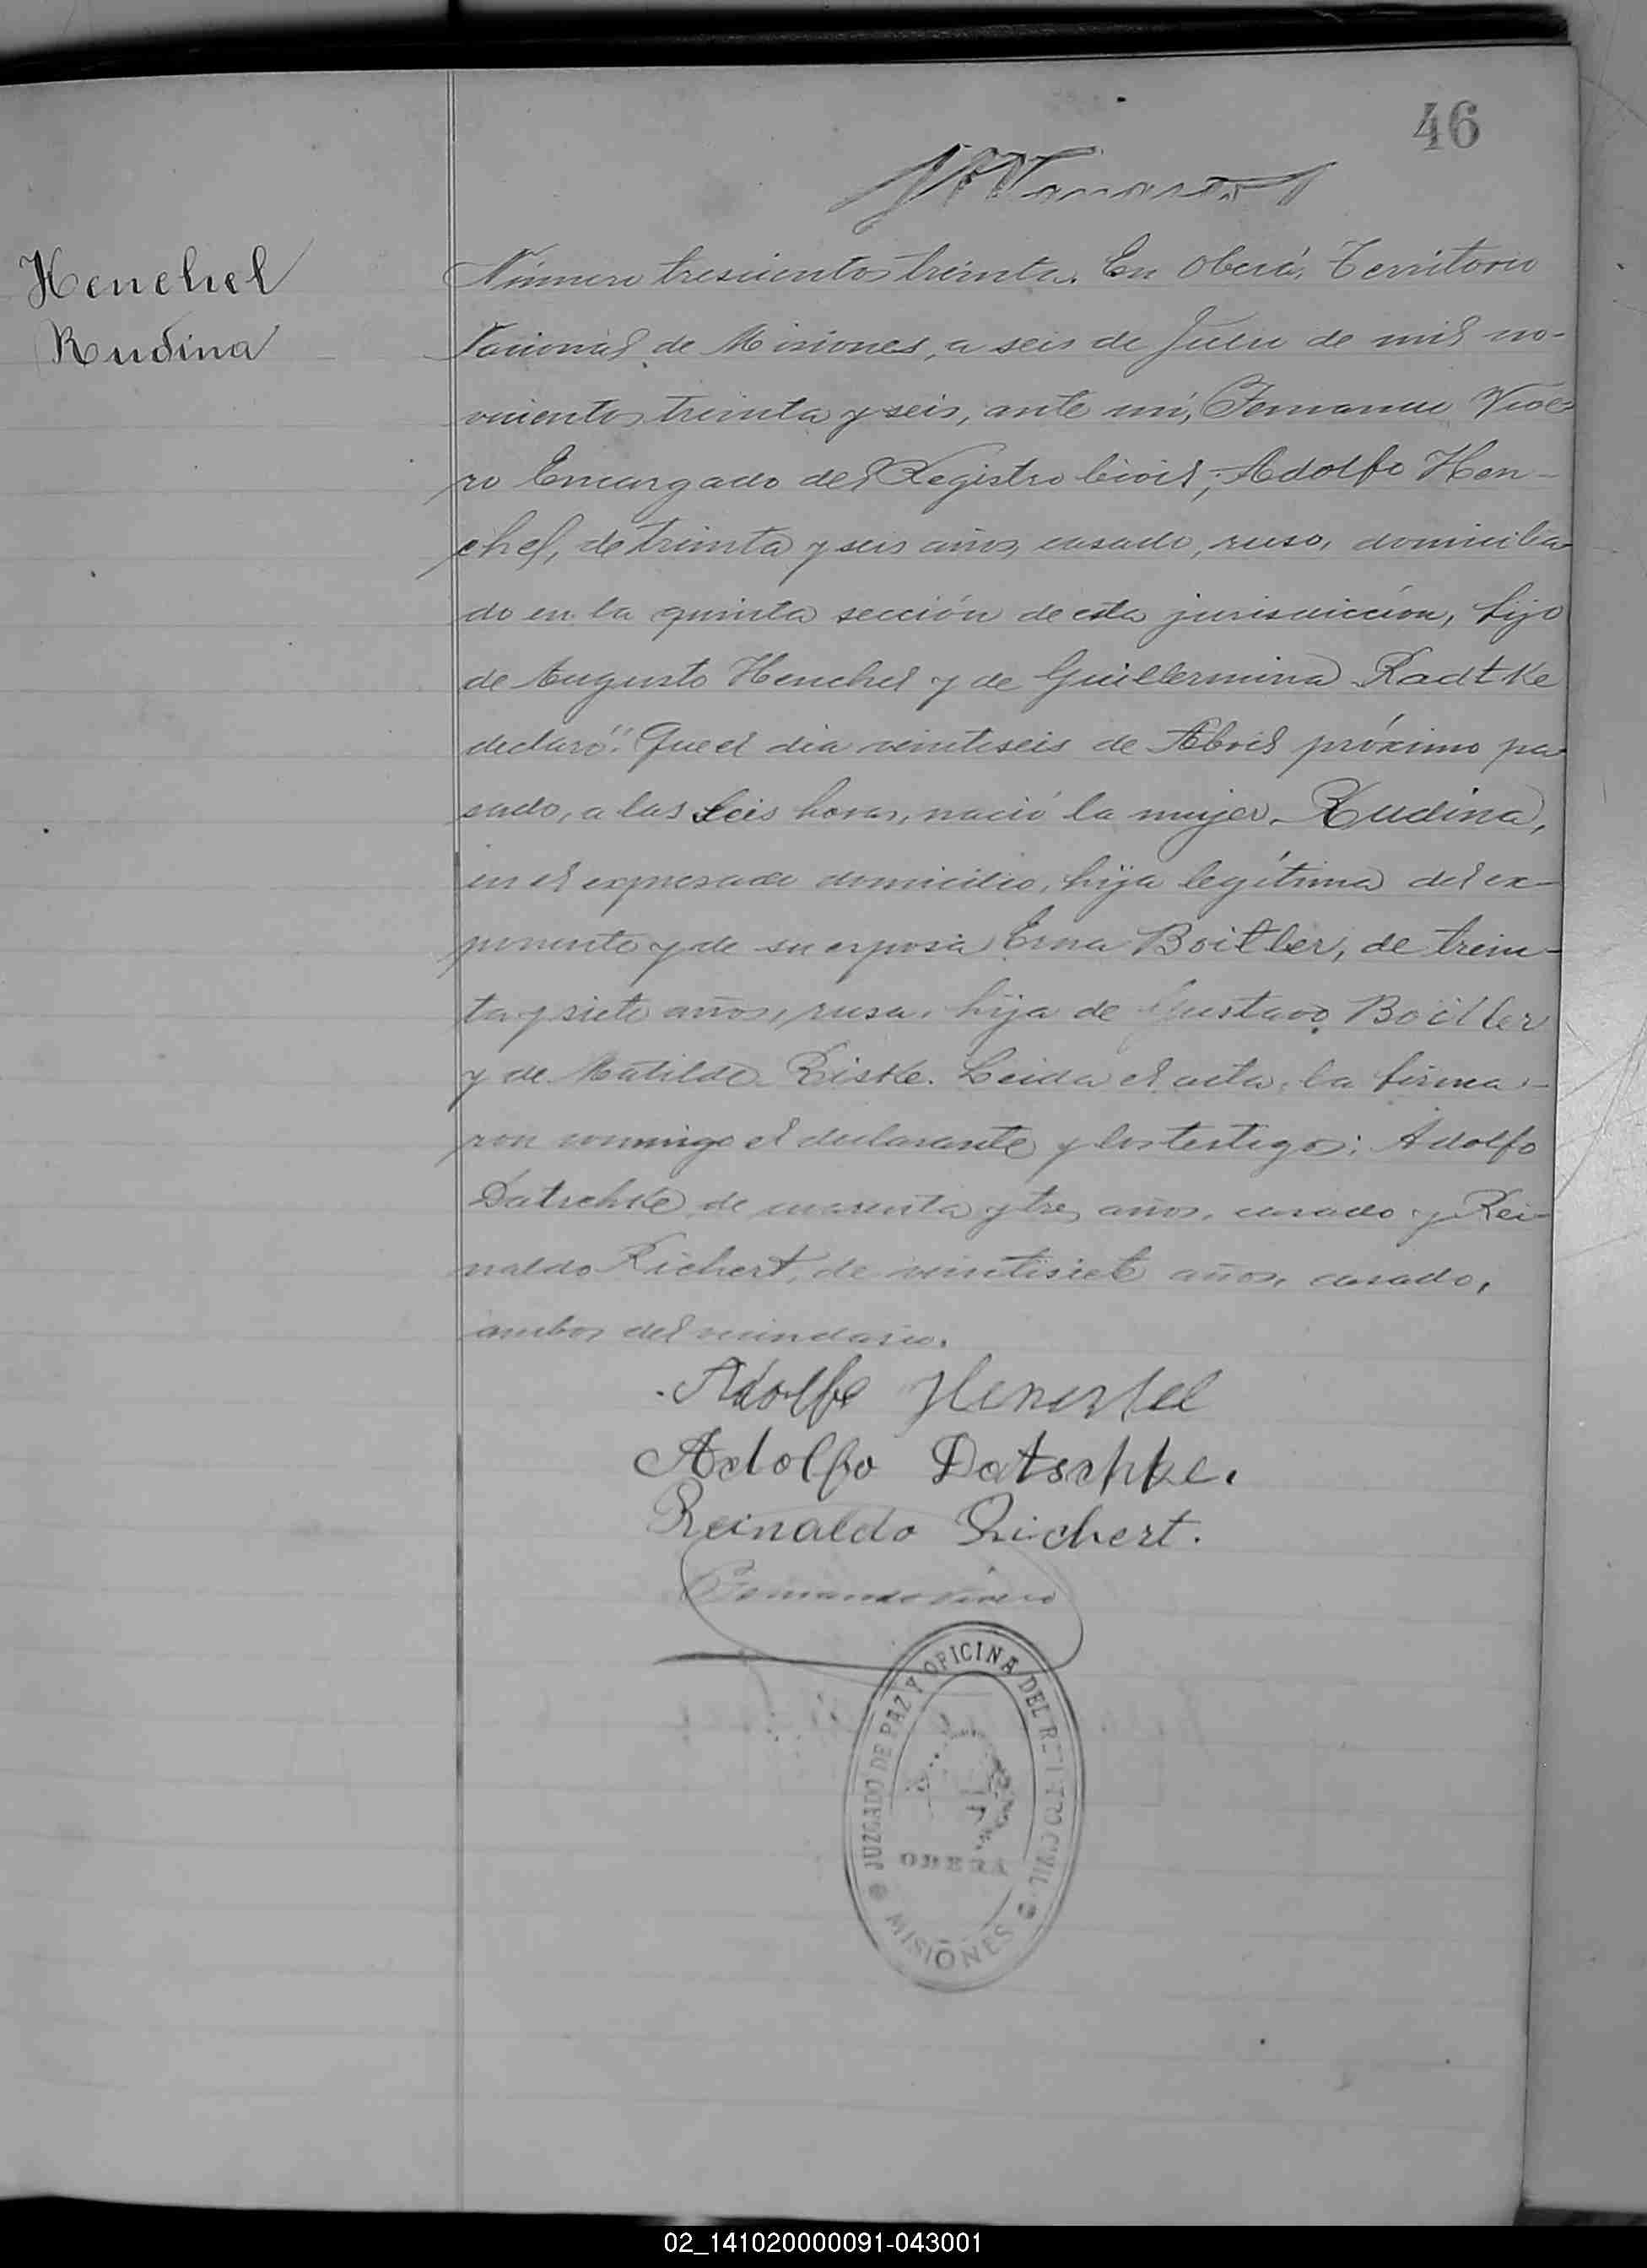 46
Henchel
Rudina
Número trescientos treinta. En Oberá, Territorio
Nacional de Misiones, a seis de Julio de mil no-
vecientos treinta y seis, ante mí, Fernando Vive-
ro Encargado del Registro Civil, Adolfo Hen-
chel, de treinta y seis años, casado, ruso, domicilia-
do en la quinta sección de esta jurisdicción, hijo
de Augusto Henchel y de Guillermina Radtke
declaró: "Que el dia veintiseis de Abril próximo pa-
sado, a las seis horas, nació la mujer Rudina,
en el expresado domicilio, hija legítima del ex-
ponente y de su esposa Erna Boitler, de trein-
ta y siete años, rusa, hija de Gustavo Boitler
y de Matilde Riske. Leida el acta, la firma-
ron conmigo el declarante y los testigos: Adolfo
Datschke de cuarenta y tres años, casado y Rei-
naldo Richert, de veintisiete años, casado,
ambos del vecindario.
Adolfo Henschel
Adolfo Datschke.
Reinaldo Richert.
Fernando Vivero
JUZGADO DE PAZ Y OFICINA DEL REGISTRO CIVIL
OBERA
MISIONES
02_141020000091-043001